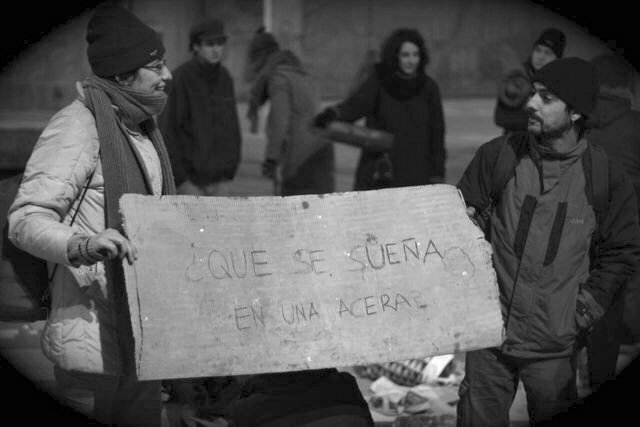 ¿QUE SE SUEÑA
EN UNA ACERA?